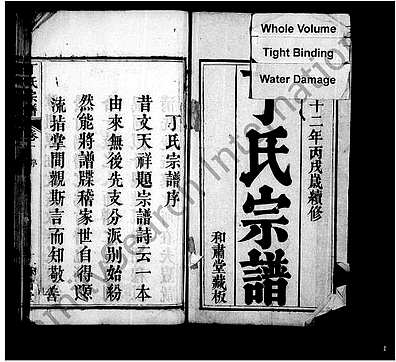 Whole Volume
Tight Binding
Water Damage
十二年丙戌歲續修
丁氏宗譜
和肅堂藏板
丁氏宗譜序
昔文天祥題宗譜詩云一本
由來無後先支分派別始粉
然能將譜牒稽家世自得願
流指掌間觀斯言而知敬善
丁氏宗譜